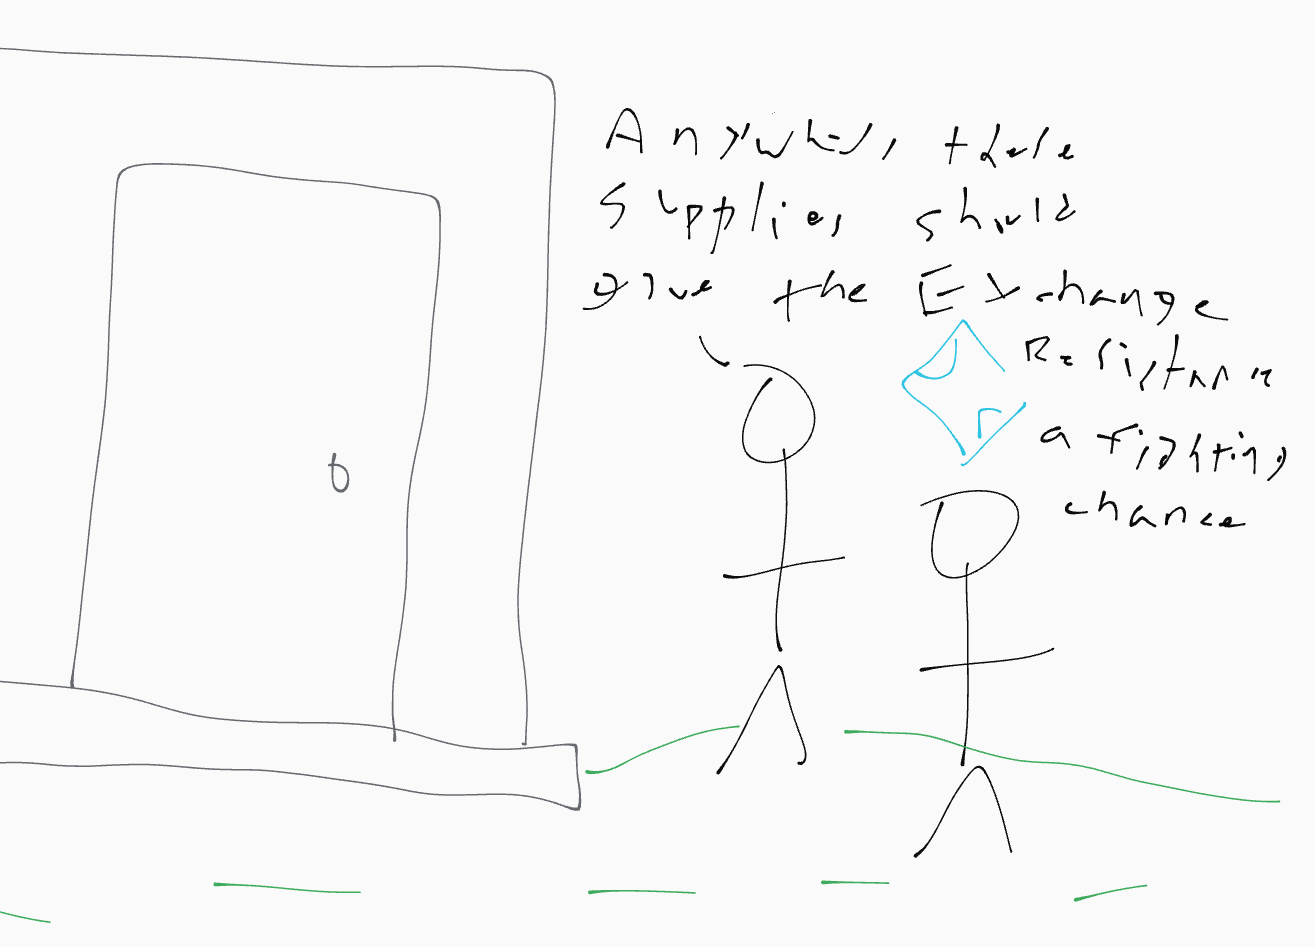 Anyways, these
supplies should
give the Exchange
Resistance
a fighting
chance